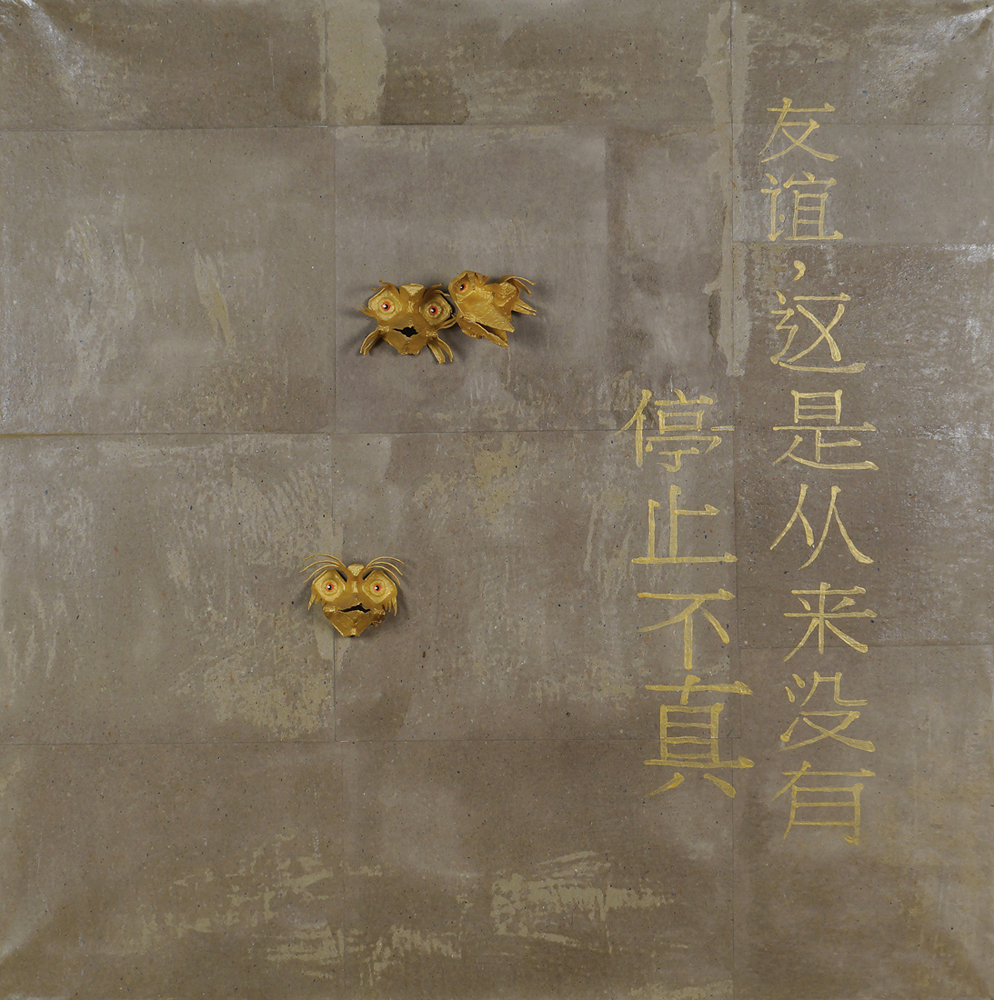 友谊，这是从来没有
停止不真